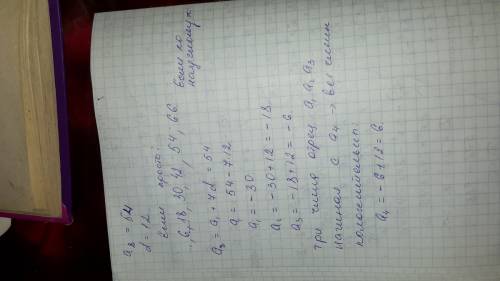 a₈ = 54
d = 12
Если просто:
-, 6, 18, 30, 42, 54, 66
Если по научному:
a₈ = a₁ + 7d = 54
a₁ = 54 - 7·12
a₁ = -30
a₂ = -30 + 12 = -18
a₃ = -18 + 12 = -6
три числа отриц a₁ a₂ a₃
начиная с a₄ → все числа
положительные:
a₄ = -6 + 12 = 6.